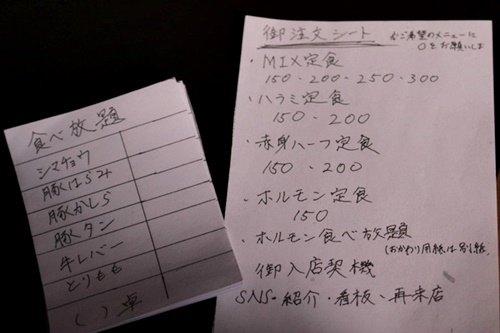 食べ放題
シマチョウ
豚はらみ
豚かしら
豚タン
牛レバー
とりもも
( )卓
御注文シート
☆ご希望のメニューに
○をお願いしま
・MIX定食
150・200・250・300
・ハラミ定食
150・200
・赤身ハーフ定食
150・200
・ホルモン定食
150
・ホルモン食べ放題
(おかわり用紙は別紙
御入店契機
SNS・紹介・看板、再来店